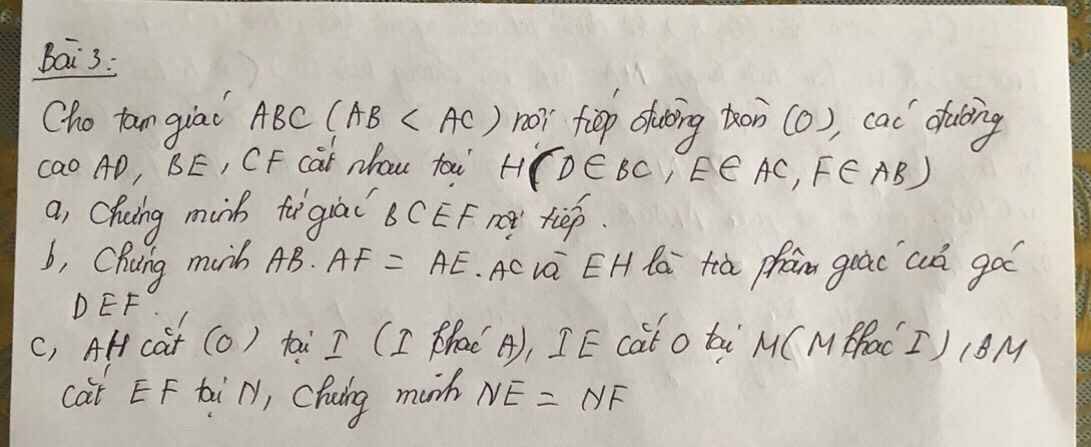 Bài 3:
Cho tam giác ABC (AB < AC) nội tiếp đường tròn (O), các đường
cao AD, BE, CF cắt nhau tại H (D ∈ BC, E ∈ AC, F ∈ AB)
a, Chứng minh tứ giác BCEF nội tiếp.
b, Chứng minh AB. AF = AE. AC và EH là tia phân giác của góc
DEF.
c, AH cắt (O) tại I (I khác A), IE cắt O tại M (M khác I), BM
cắt EF tại N, Chứng minh NE = NF